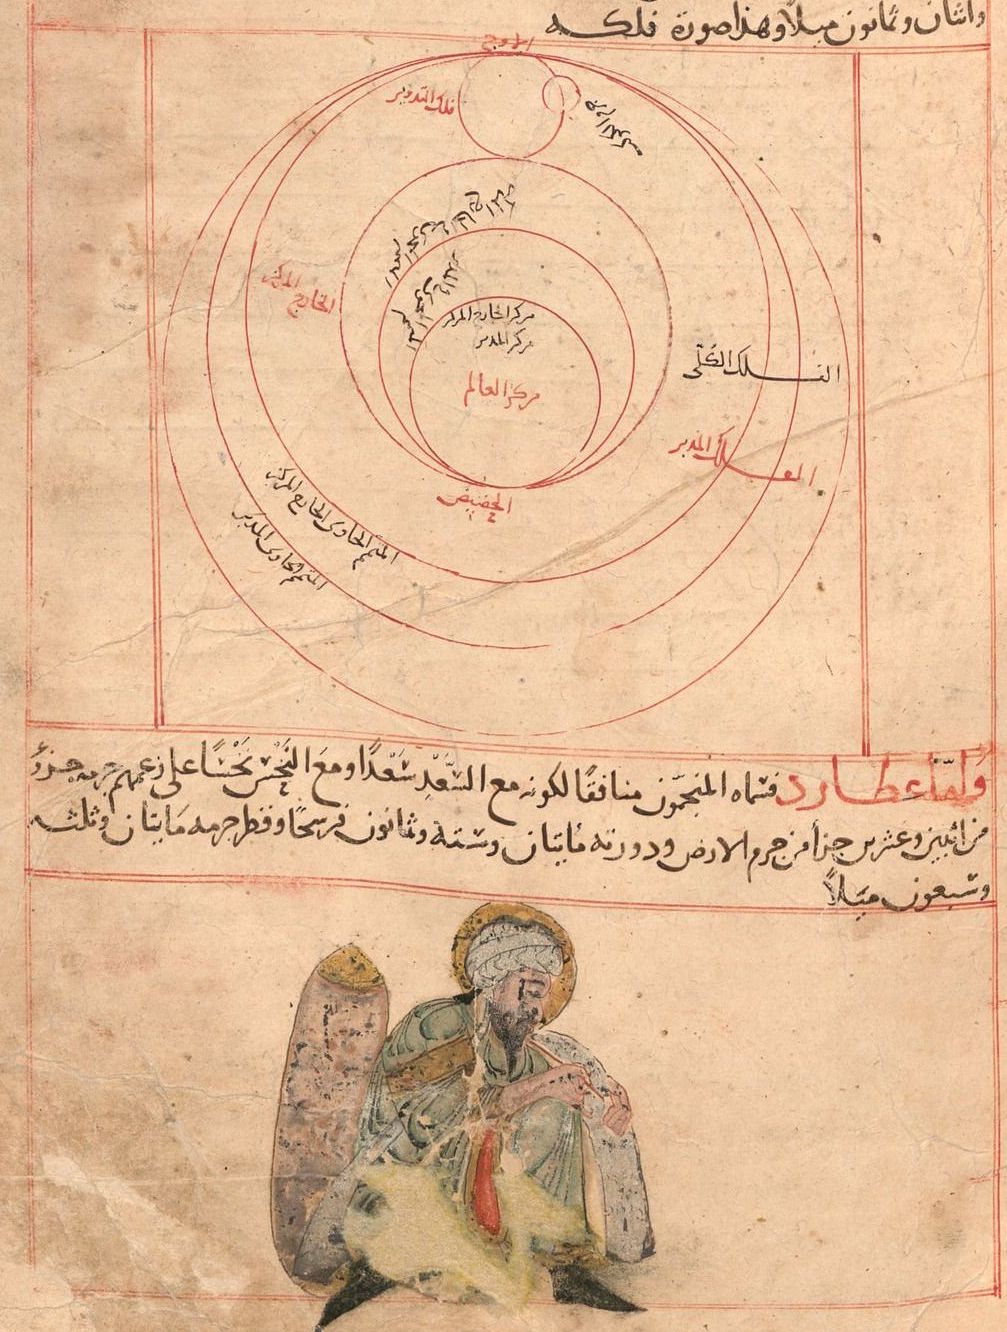 واثنان وثمانون ميلا وهذا صورة فلكه
الاوج
فلك التدوير
الخارج المركز
مركز الخارج المركز
مركز المدير
مركز العالم
الفلك الكلى
الفلك المدير
الحضيض
المتمم الحاوى الخارج المركز
المتمم الحاوى المدير
وامّا عطارد فسماه المنجمّون منافقًا لكونه مع السَّعْدِ سَعْدًا ومعَ النَّحْسِ نَحْسًا على زعمهم جرمه جزؤ
من اثنين وعشرين جزأ من جرم الارض ودورته مايتان وستة وثمانون فرسخًا وقطر جرمه مايتان وثلثه
وسبعون ميلاً